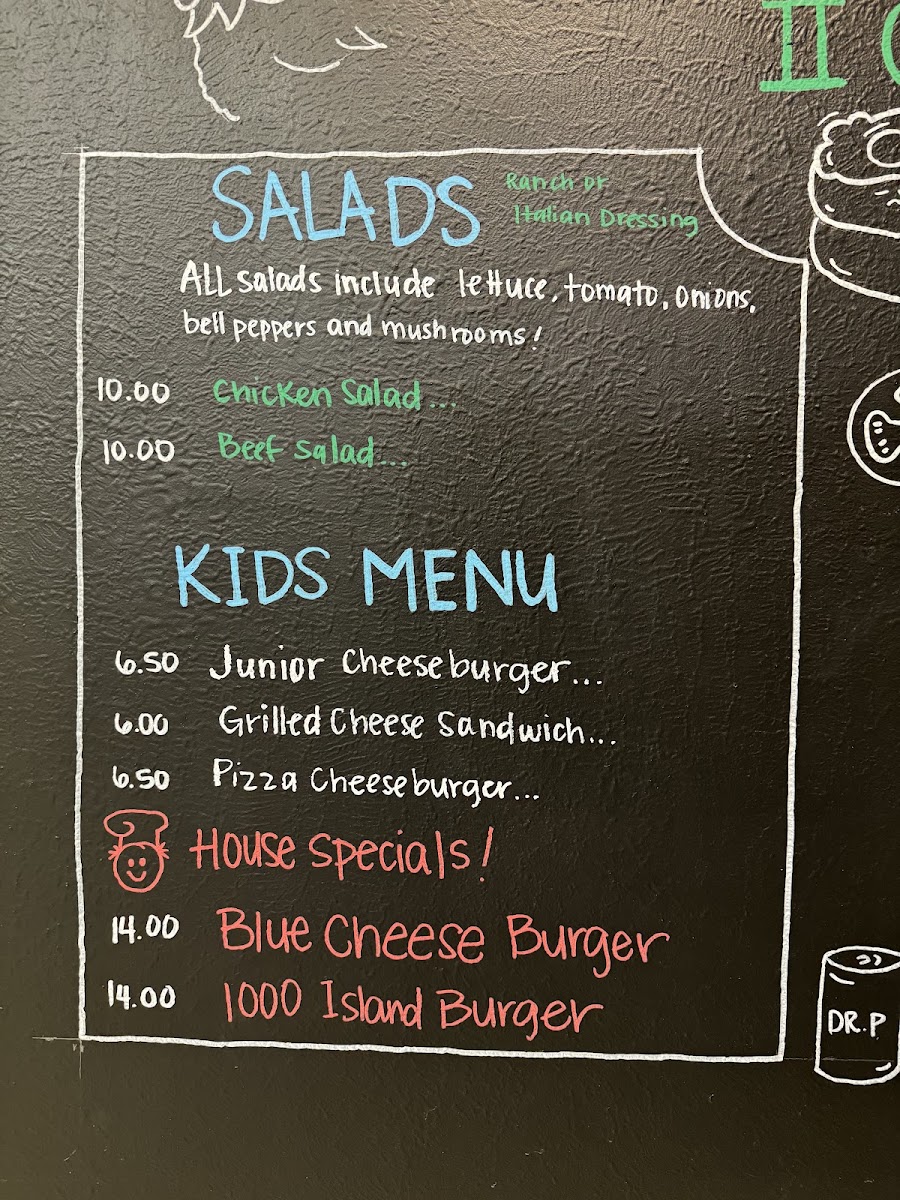 SALADS
Ranch or
Italian Dressing
ALL salads include lettuce, tomato, onions,
bell peppers and mushrooms!
10.00 Chicken Salad...
10.00 Beef Salad...
KIDS MENU
6.50 Junior Cheeseburger...
6.00 Grilled Cheese Sandwich...
6.50 Pizza Cheeseburger...
House Specials!
14.00 Blue Cheese Burger
14.00 1000 Island Burger
DR.P